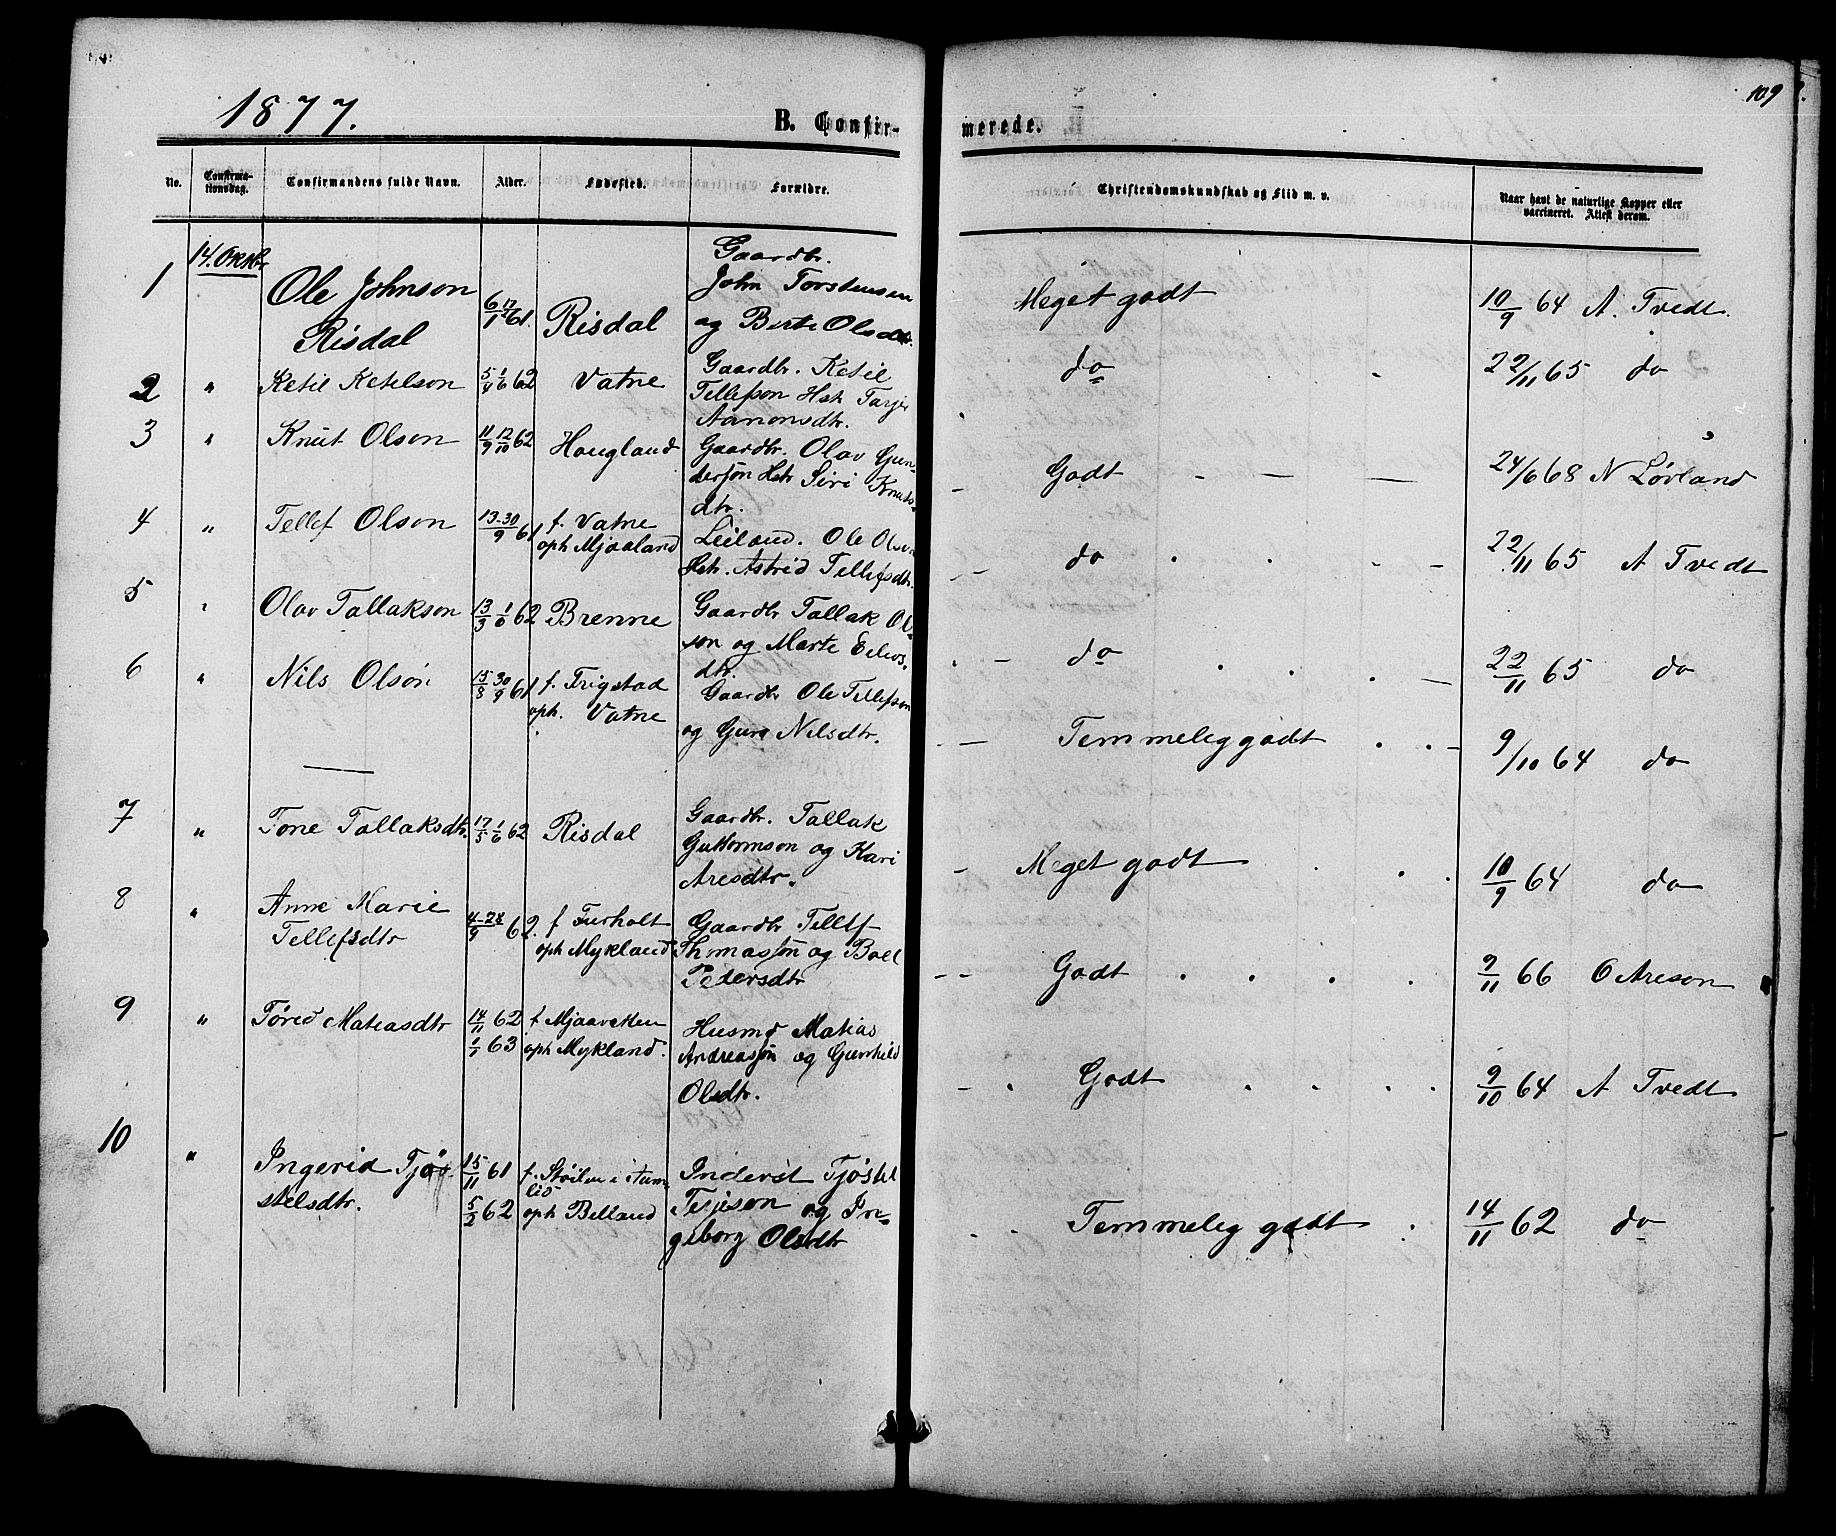 109
1877.
B. Confirmerede.
No. Confirmationsdag. Confirmandens fulde Navn. Alder. Fødested. Forældre. Christendomskundskab og Flid m. v. Naar havt de naturlige Kopper eller vaccineret. Attest derom.
14. Oktbr
1 Ole Johnson Risdal 6/1 12/1 61. Risdal Gaardbr. John Torstensen og Berte Olsdtr. Meget godt 10/9 64 A. Tvedt.
2 " Ketil Ketelson 5/4 1/6 62 Vatne Gaardbr. Ketil Tellefson Hstr Tarjer Aanonsdtr. do 22/11 65 do
3 " Knut Olson 11/9 12/10 62 Hougland Gaardbr. Olav Gundersøn Hstr Siri Knutsdtr. Godt 24/6 68 N Løvland
4 " Tellef Olson 13-30/9 61 f. Vatne oph Mjaaland Leilænd. Ole Olson Hstr. Astrid Tellefsdtr. do 22/11 65 A Tvedt
5 " Olav Tallakson 13/3 1/6 62 Brenne Gaardbr Tallak Olson og Marte Eilevsdtr. do 22/11 65 do
6 " Nils Olson 15/8 30/9 61 f. Trigstad oph. Vatne Gaardbr Ole Tellefson og Guro Nilsdtr. Temmelig godt 9/10 64 do
7 " Tone Tallaksdtr. 17/5 1/6 62 Risdal Gaardbr. Tallak Guttormson og Kari Aresdtr. Meget godt 10/9 64 do
8 " Anne Marie Tellefsdtr 4-28/9 62. f Furholt oph Mykland Gaardbr Tellef Thomassøn og Boel Pedersdtr Godt 9/11 66 O Areson
9 " Tøred Matiasdtr 14/11 62 1/1 63 f Mjaavatten oph Mykland. Husmd Matias Andreassøn og Gunhild Olsdtr. Godt 9/10 64 A Tvedt
10 " Ingerid Tjøstelsdtr. 15/11 61 5/2 62 f. Støilen i Aumlid oph Belland Inderst Tjøstel Terjeson og Ingeborg Olsdtr Temmelig godt 14/11 62 do